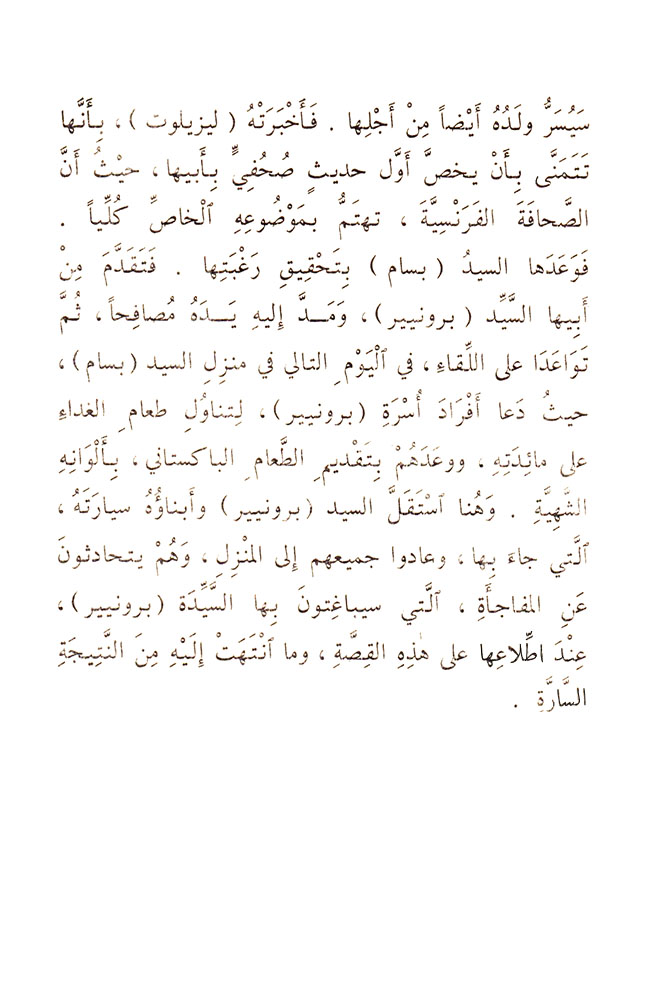 سَيُسَرُّ ولَدُهُ أَيْضاً مِنْ أَجْلِها . فَأَخْبَرَتْهُ ( ليزيلوت ) ، بِأَنَّها
تَتَمَنَّى بِأَنْ يخصَّ أَوَّل حديثٍ صُحُفِيٍّ بِأَبيها ، حيْثُ أَنَّ
الصَّحافَةَ الفَرَنْسِيَّةَ ، تهتَمُّ بمَوْضُوعِهِ ٱلْخاصِّ كُلِّياً .
فَوَعَدَها السيدُ ( بسام ) بِتَحْقيقِ رَغْبَتِها . فَتَقَدَّمَ مِنْ
أَبِيها السَّيِّد ( برونيير ) ، وَمَــدَّ إِليهِ يَــدَهُ مُصافِحاً ، ثُمَّ
تَوَاعَدَا على اللِّقاءِ ، في ٱلْيَوْمِ التالي في منزِلِ السيد ( بسام ) ،
حيثُ دَعا أَفْرَادَ أُسْرَةِ ( برونيير ) ، لِتناوُلِ طعامِ الغداءِ
على مائِدَتِهِ ، ووعَدَهُمْ بِتَقْديمِ الطَّعامِ الباكستاني ، بِأَلْوَانِهِ
الشَّهِيَّةِ . وَهُنا ٱسْتَقَلَّ السيد ( برونيير ) وأَبناؤُهُ سيارَتَهُ ،
ٱلَّتي جاءَ بِها ، وعادوا جميعهم إِلى المْنزِلِ ، وَهُمْ يتحادثونَ
عَنِ المفاجأَةِ ، ٱلَّتي سيباغِتونَ بِها السَّيِّدَة ( برونيير ) ،
عِنْدَ اطِّلاعِها على هٰذِهِ القِصَّةِ ، وما ٱنْتَهَتْ إِلَيْهِ مِنَ النَّتِيجَةِ
السَّارَّةِ .